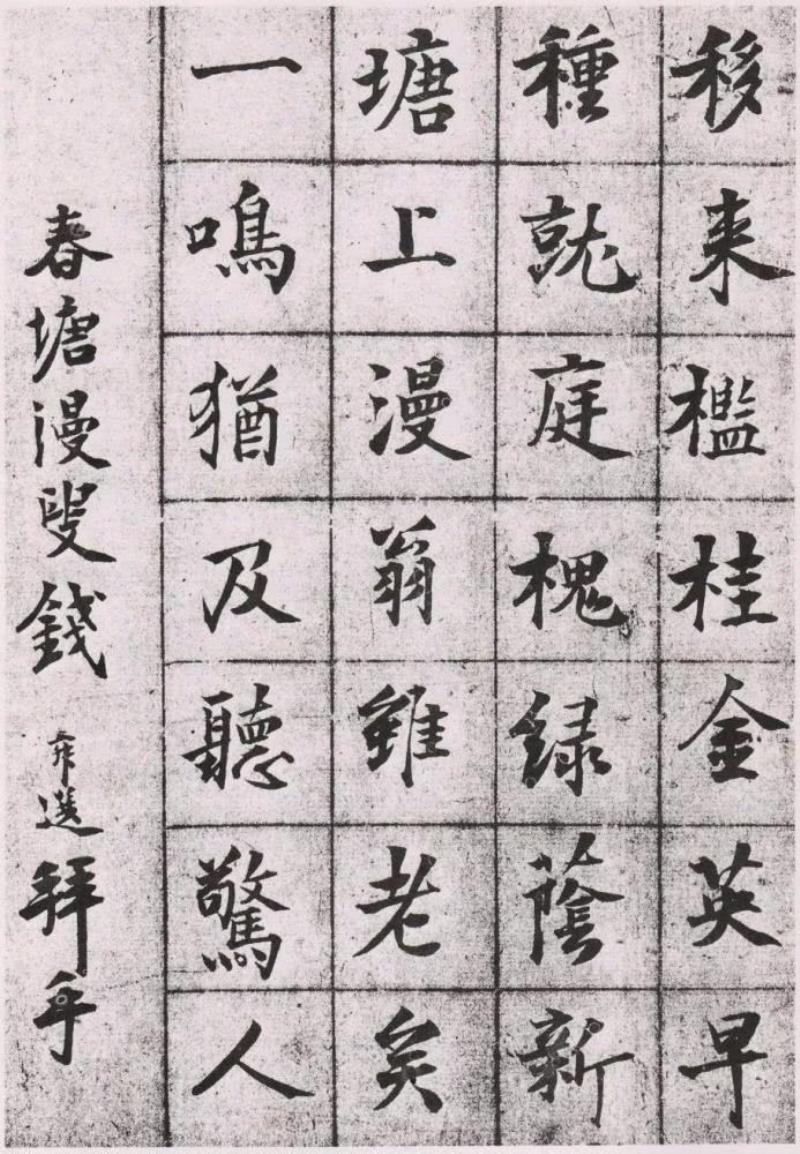 移来檻桂金英早
種就庭槐緑蔭新
塘上漫翁雖老矣
一鳴猶及聽驚人
春塘漫叟錢 選拜手